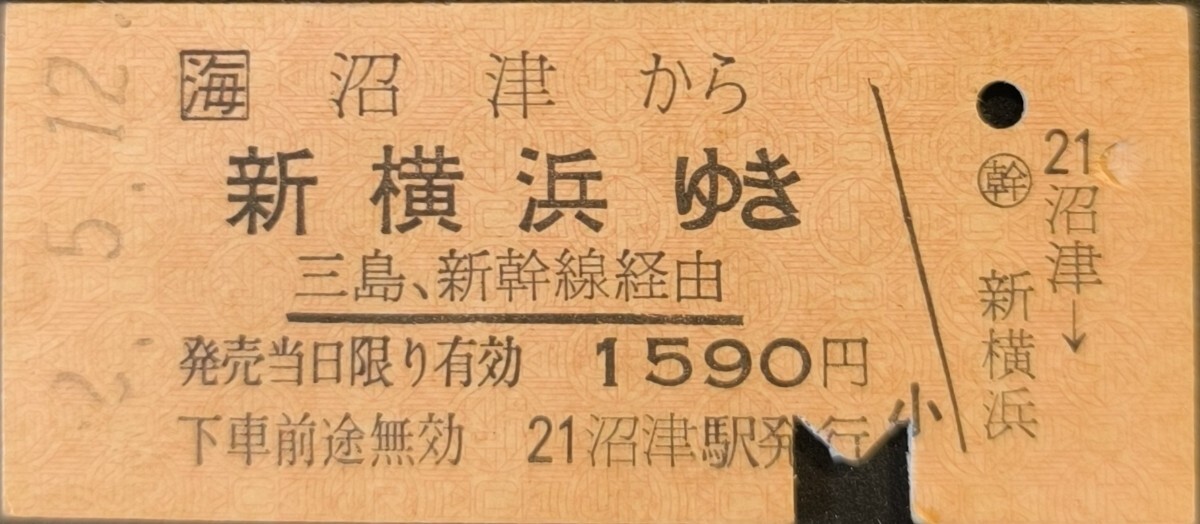 2.5.12.
海 沼津から
新横浜ゆき
三島、新幹線経由
発売当日限り有効 1590円
下車前途無効 21沼津駅発行
小
21
沼津→
幹 新横浜